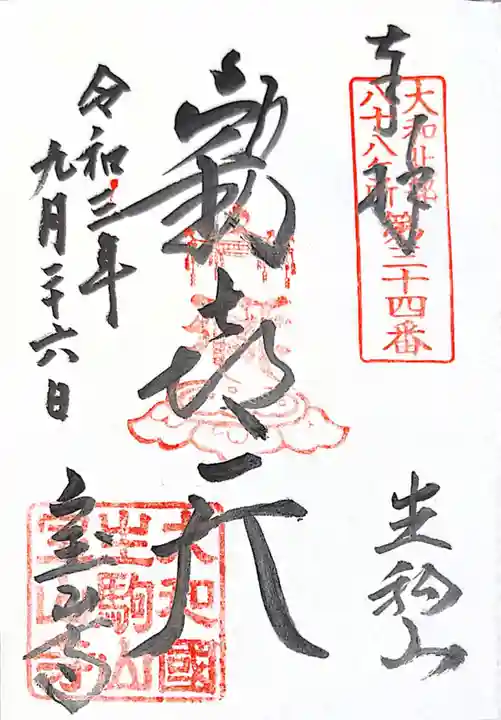 奉拝
大和北部
八十八ヶ所第三十四番
生駒山
歓喜天
大和國
生駒山
宝山寺
宝山寺
令和三年
九月二十六日